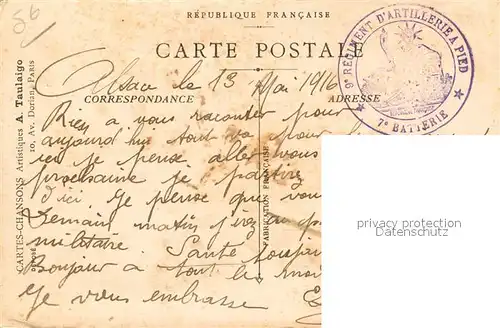 86
RÉPUBLIQUE FRANÇAISE
CARTE POSTALE
9e RÉGIMENT D'ARTILLERIE A PIED
7e BATTERIE
Alsace le 13 Mai 1916
CORRESPONDANCE
ADRESSE
Rien a vous raconter pour
aujourd'hui tout va pour
ici je pense aller vous
prochaine je partire
d'ici. Je pense que vou
demain matin j'irez au
militaire. Santé toujour
Bonjour a tout le mon
Je vous embrasse
CARTES-CHANSONS Artistiques A. Taulaigo
10, Av. Dorian, Paris
FABRICATION FRANÇAISE
privacy protection
Datenschutz